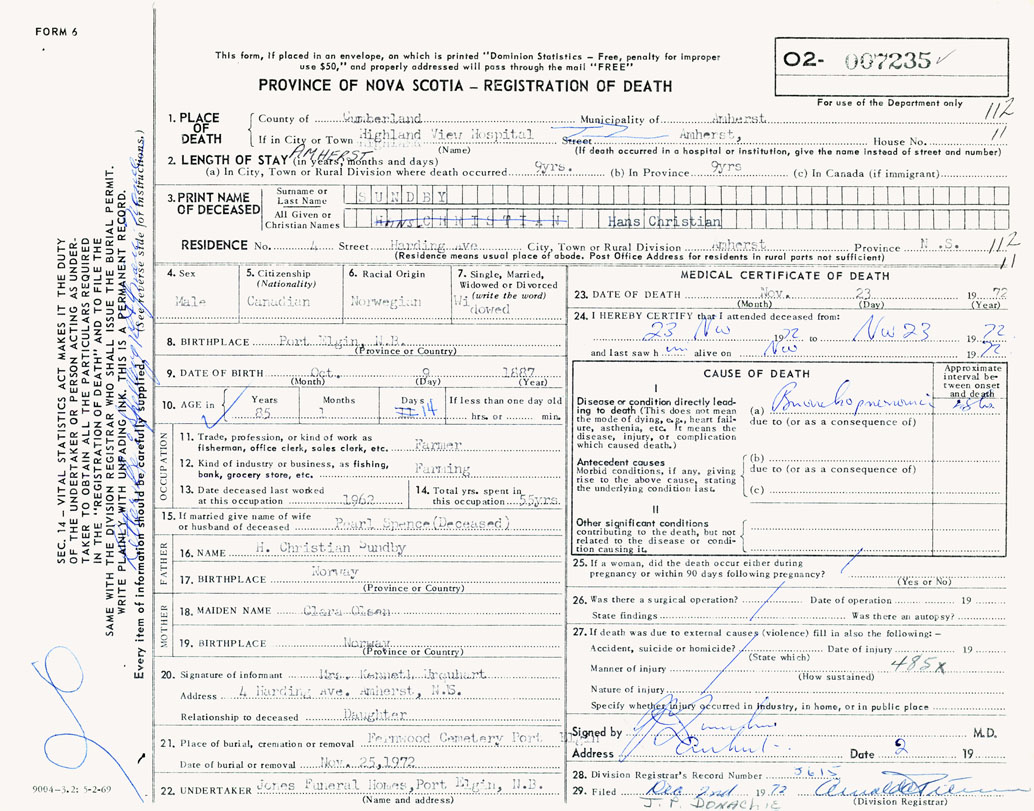 FORM 6
This form, if placed in an envelope, on which is printed "Dominion Statistics – Free, penalty for improper
use $50," and properly addressed will pass through the mail "FREE"
PROVINCE OF NOVA SCOTIA – REGISTRATION OF DEATH
02- 007235
For use of the Department only
112
11
1. PLACE OF DEATH
County of Cumberland Municipality of Amherst
If in City or Town Highland View Hospital Street Amherst, House No.
(Name) (If death occurred in a hospital or institution, give the name instead of street and number)
AMHERST
2. LENGTH OF STAY (in years, months and days)
(a) In City, Town or Rural Division where death occurred 9yrs. (b) In Province 9yrs (c) In Canada (if immigrant)
3. PRINT NAME OF DECEASED
Surname or Last Name SUNDBY
All Given or Christian Names HANS CHRISTIAN Hans Christian
RESIDENCE No. 4 Street Harding Ave. City, Town or Rural Division Amherst Province N.S.
(Residence means usual place of abode. Post Office Address for residents in rural parts not sufficient)
112
11
4. Sex
Male
5. Citizenship
(Nationality)
Canadian
6. Racial Origin
Norwegian
7. Single, Married,
Widowed or Divorced
(write the word)
Widowed
8. BIRTHPLACE Port Elgin, N.B.
(Province or Country)
9. DATE OF BIRTH Oct. 9 1887
(Month) (Day) (Year)
10. AGE in Years Months Days If less than one day old
85 1 14 hrs. or min.
OCCUPATION
11. Trade, profession, or kind of work as
fisherman, office clerk, sales clerk, etc. Farmer
12. Kind of industry or business, as fishing,
bank, grocery store, etc. Farming
13. Date deceased last worked
at this occupation 1962
14. Total yrs. spent in
this occupation 55yrs.
15. If married give name of wife
or husband of deceased Pearl Spence(Deceased)
FATHER
16. NAME H. Christian Sundby
17. BIRTHPLACE Norway
(Province or Country)
MOTHER
18. MAIDEN NAME Clara Olsen
19. BIRTHPLACE Norway
(Province or Country)
20. Signature of informant Mrs. Kenneth Urquhart
Address 4 Harding Ave. Amherst, N.S.
Relationship to deceased Daughter
21. Place of burial, cremation or removal Fernwood Cemetery Port Elgin
Date of burial or removal Nov. 25,1972
22. UNDERTAKER Jones Funeral Homes,Port Elgin, N.B.
(Name and address)
MEDICAL CERTIFICATE OF DEATH
23. DATE OF DEATH Nov. 23 1972
(Month) (Day) (Year)
24. I HEREBY CERTIFY that I attended deceased from:
23 Nov 1972 to Nov 23 1972
and last saw him alive on Nov 1972
CAUSE OF DEATH
Approximate
interval be-
tween onset
and death
I
Disease or condition directly lead-
ing to death (This does not mean
the mode of dying, e.g., heart fail-
ure, asthenia, etc. It means the
disease, injury, or complication
which caused death.)
(a) Bronchopneumonia
due to (or as a consequence of)
Antecedent causes
Morbid conditions, if any, giving
rise to the above cause, stating
the underlying condition last.
(b)
due to (or as a consequence of)
(c)
II
Other significant conditions
contributing to the death, but not
related to the disease or condi-
tion causing it.
25. If a woman, did the death occur either during
pregnancy or within 90 days following pregnancy?
(Yes or No)
26. Was there a surgical operation? Date of operation 19
State findings Was there an autopsy?
27. If death was due to external causes (violence) fill in also the following: –
Accident, suicide or homicide? Date of injury 19
(State which)
485x
Manner of injury
(How sustained)
Nature of injury
Specify whether injury occurred in Industry, in home, or in public place
Signed by M.D.
Address Amherst Date 2 19
28. Division Registrar's Record Number 5615
29. Filed Dec 2nd 1972
J. P. DONACHIE (Division Registrar)
SEC. 14 – VITAL STATISTICS ACT MAKES IT THE DUTY
OF THE UNDERTAKER OR PERSON ACTING AS UNDER-
TAKER TO OBTAIN ALL THE PARTICULARS REQUIRED
IN THE "REGISTRATION OF DEATH" AND TO FILE THE
SAME WITH THE DIVISION REGISTRAR WHO SHALL ISSUE THE BURIAL PERMIT.
WRITE PLAINLY WITH UNFADING INK. THIS IS A PERMANENT RECORD.
Every item of information should be carefully supplied. (See reverse side for instructions.)
9004-3.2: 5-2-69